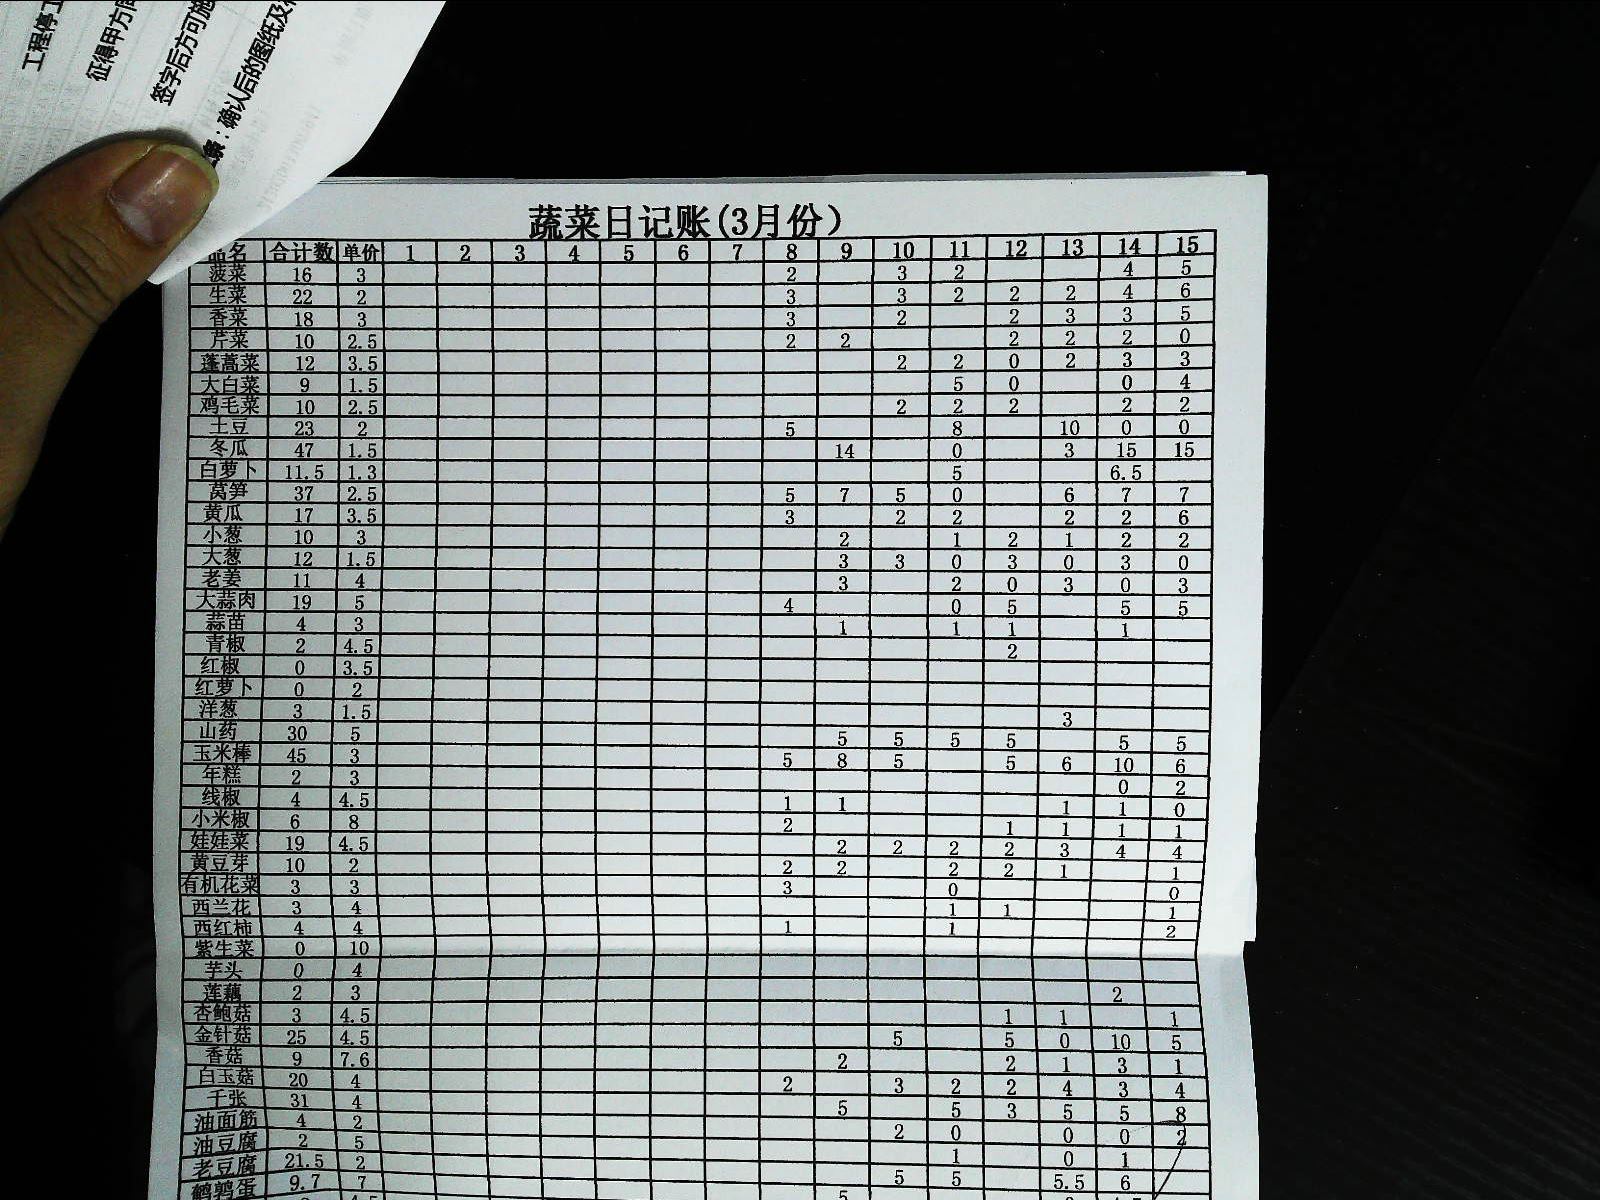 工程停工
征得甲方同
签字后方可施
条：确认后的图纸及
蔬菜日记账(3月份)
品名 合计数 单价 1 2 3 4 5 6 7 8 9 10 11 12 13 14 15
菠菜 16 3 2 3 2 4 5
生菜 22 2 3 3 2 2 2 4 6
香菜 18 3 3 2 2 3 3 5
芹菜 10 2.5 2 2 2 2 2 0
蓬蒿菜 12 3.5 2 2 0 2 3 3
大白菜 9 1.5 5 0 0 4
鸡毛菜 10 2.5 2 2 2 2 2
土豆 23 2 5 8 10 0 0
冬瓜 47 1.5 14 0 3 15 15
白萝卜 11.5 1.3 5 6.5
莴笋 37 2.5 5 7 5 0 6 7 7
黄瓜 17 3.5 3 2 2 2 2 6
小葱 10 3 2 1 2 1 2 2
大葱 12 1.5 3 3 0 3 0 3 0
老姜 11 4 3 2 0 3 0 3
大蒜肉 19 5 4 0 5 5 5
蒜苗 4 3 1 1 1 1
青椒 2 4.5 2
红椒 0 3.5
红萝卜 0 2
洋葱 3 1.5 3
山药 30 5 5 5 5 5 5 5
玉米棒 45 3 5 8 5 5 6 10 6
年糕 2 3 0 2
线椒 4 4.5 1 1 1 1 0
小米椒 6 8 2 1 1 1 1
娃娃菜 19 4.5 2 2 2 2 3 4 4
黄豆芽 10 2 2 2 2 2 1 1
有机花菜 3 3 3 0 0
西兰花 3 4 1 1 1
西红柿 4 4 1 1 2
紫生菜 0 10
芋头 0 4
莲藕 2 3 2
杏鲍菇 3 4.5 1 1 1
金针菇 25 4.5 5 5 0 10 5
香菇 9 7.6 2 2 1 3 1
白玉菇 20 4 2 3 2 2 4 3 4
千张 31 4 5 5 3 5 5 8
油面筋 4 2 2 0 0 0 2
油豆腐 2 5 1 0 1
老豆腐 21.5 2 5 5 5.5 6
鹌鹑蛋 9.7 7 5